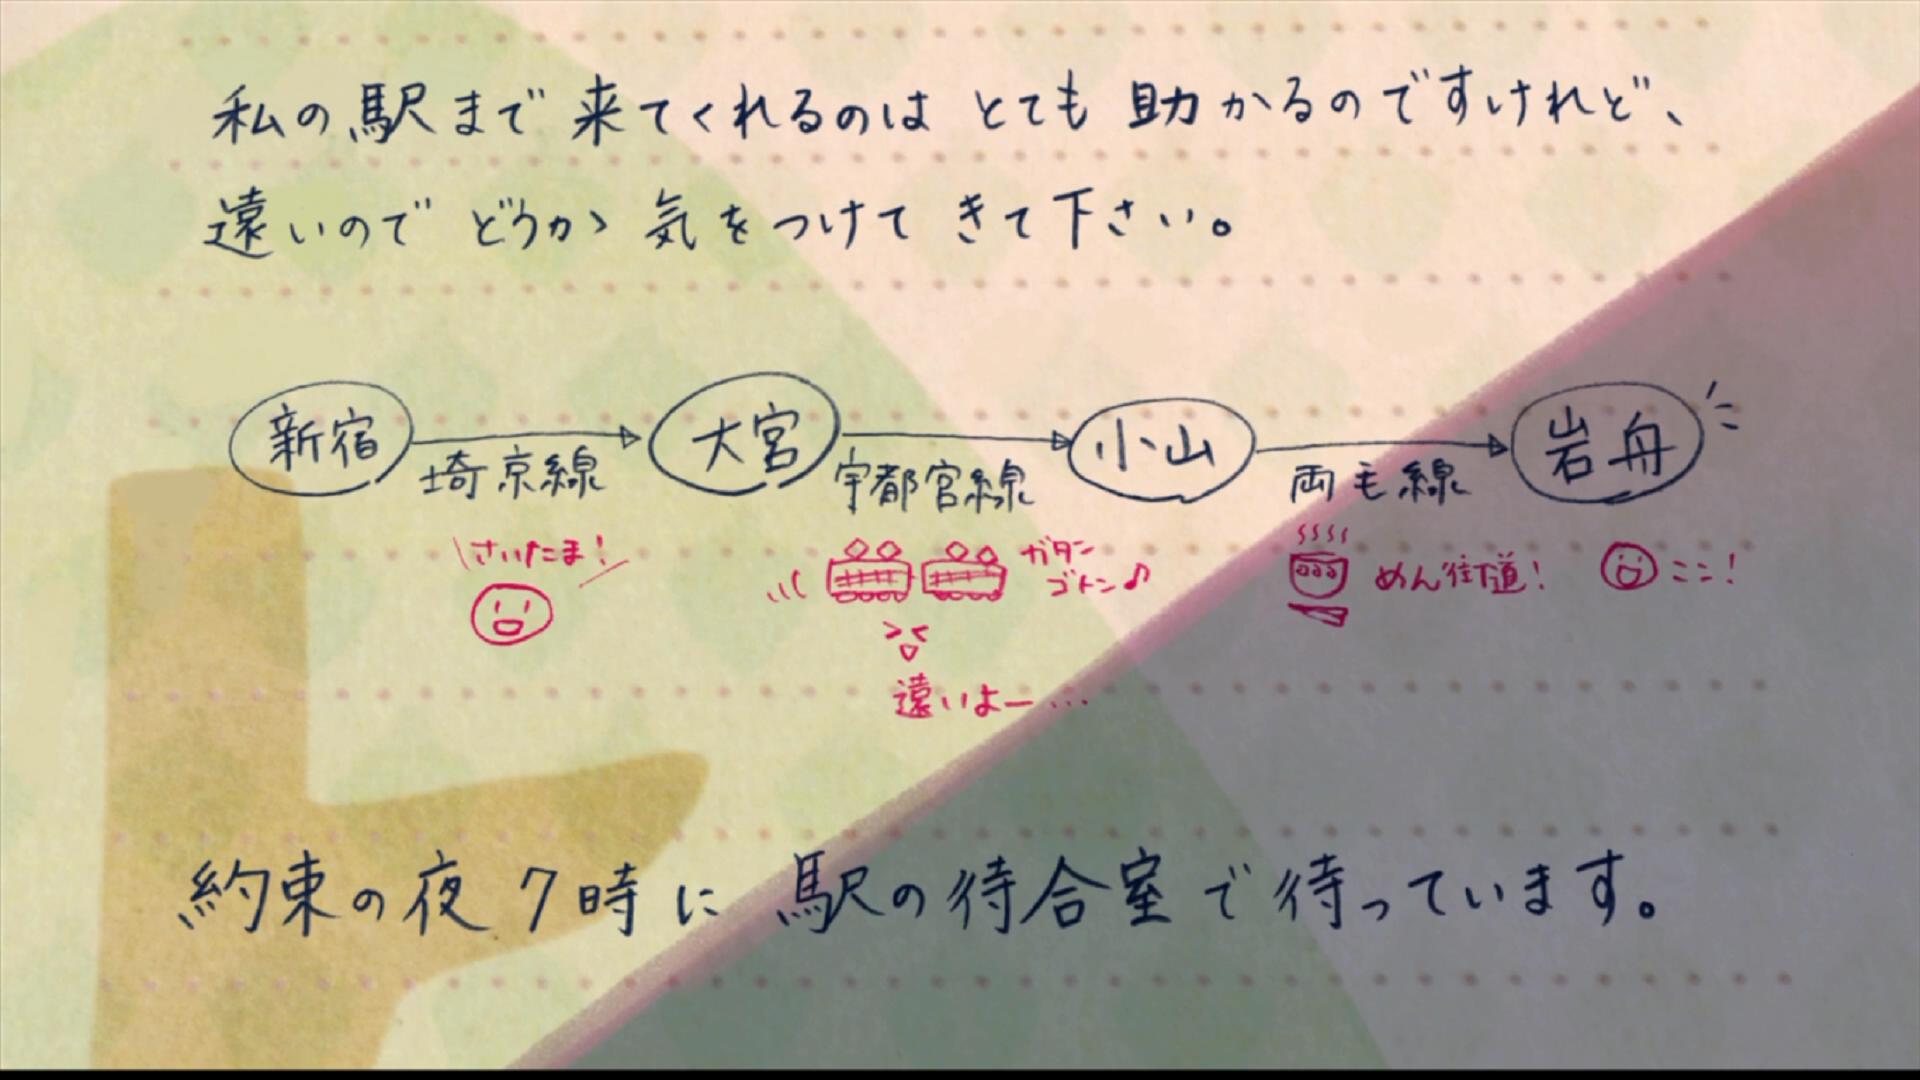 私の駅まで来てくれるのはとても助かるのですけれど、
遠いのでどうか気をつけてきて下さい。
新宿 埼京線 大宮 宇都宮線 小山 両毛線 岩舟
さいたま!
ガタン
ゴトン♪
めん街道! ここ!
遠いよー…
約束の夜7時に駅の待合室で待っています。